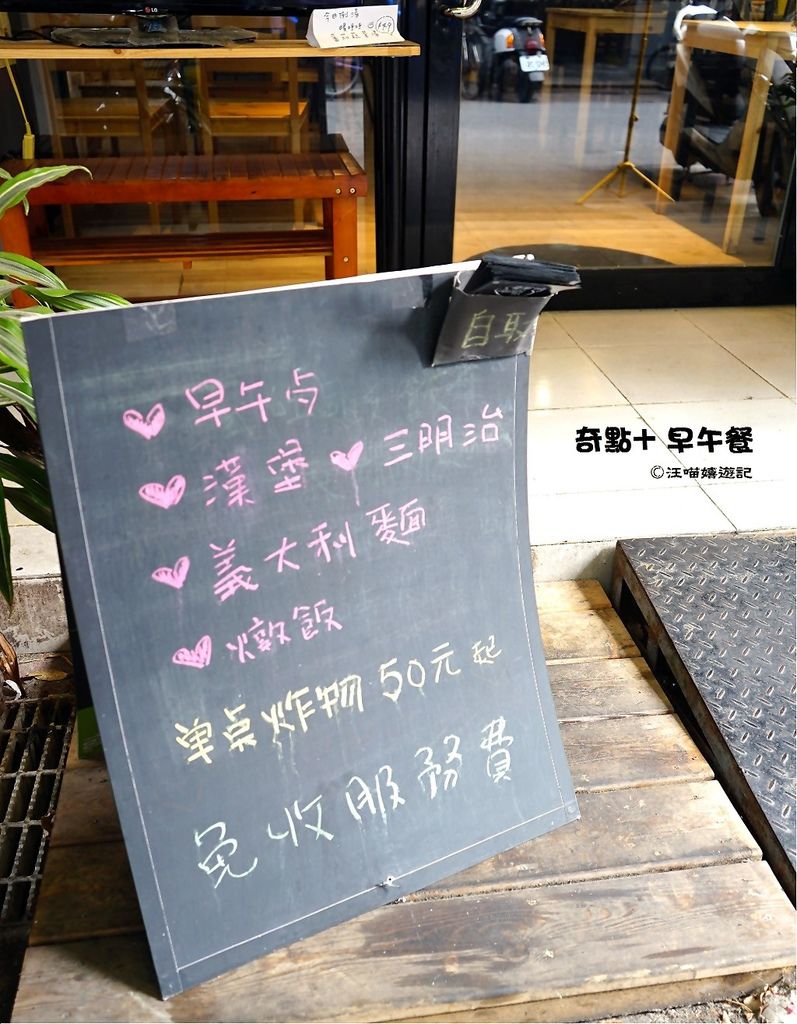 LG
今日例湯
自取
早午点
漢堡 三明治
義大利麵
燉飯
单点炸物 50元起
免收服務費
奇點十 早午餐
©汪喵嬉遊記